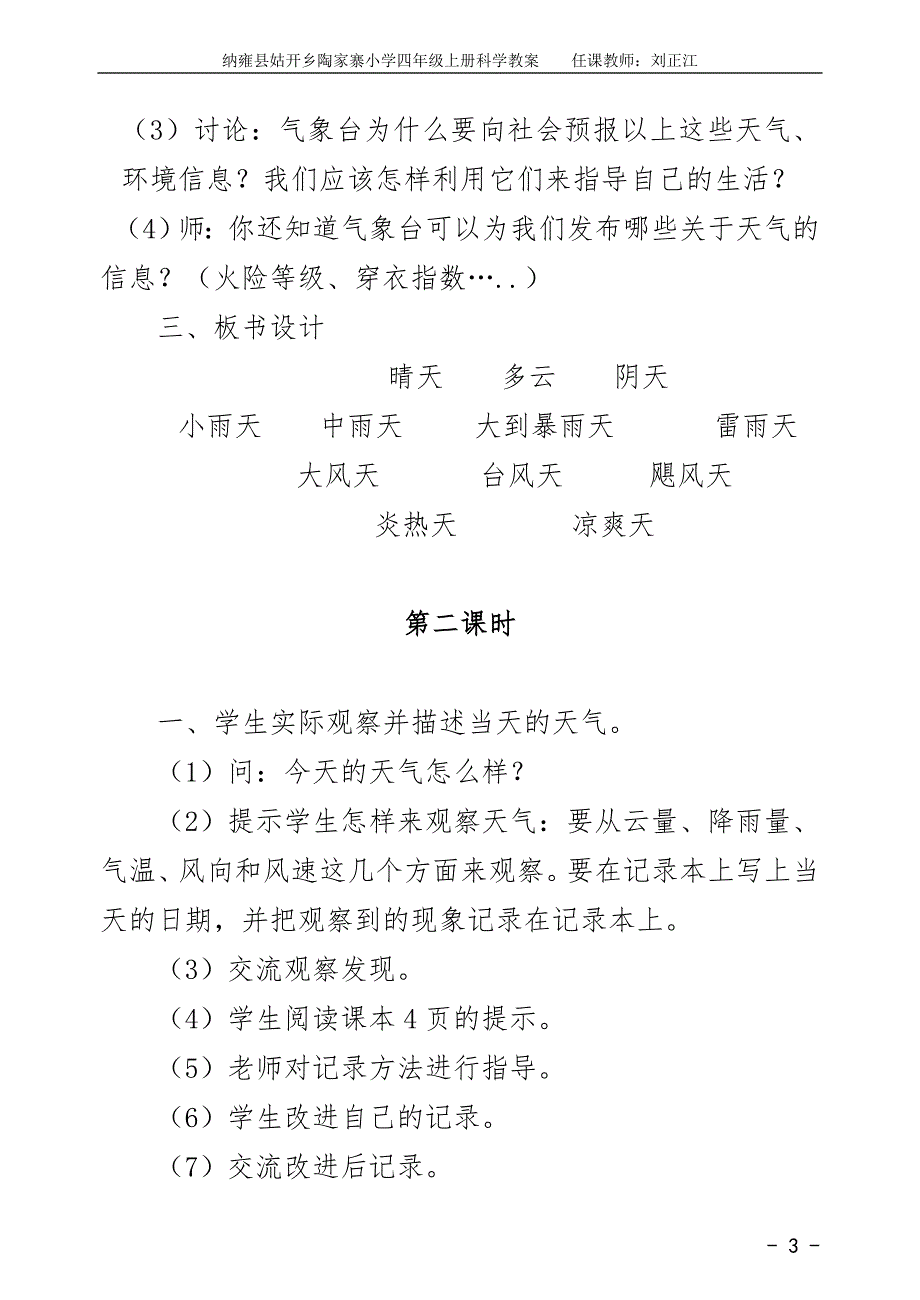 纳雍县姑开乡陶家寨小学四年级上册科学教案 任课教师：刘正江
（3）讨论：气象台为什么要向社会预报以上这些天气、
环境信息？我们应该怎样利用它们来指导自己的生活？
（4）师：你还知道气象台可以为我们发布哪些关于天气的
信息？（火险等级、穿衣指数…..）
三、板书设计
晴天 多云 阴天
小雨天 中雨天 大到暴雨天 雷雨天
大风天 台风天 飓风天
炎热天 凉爽天
第二课时
一、学生实际观察并描述当天的天气。
（1）问：今天的天气怎么样？
（2）提示学生怎样来观察天气：要从云量、降雨量、
气温、风向和风速这几个方面来观察。要在记录本上写上当
天的日期，并把观察到的现象记录在记录本上。
（3）交流观察发现。
（4）学生阅读课本4页的提示。
（5）老师对记录方法进行指导。
（6）学生改进自己的记录。
（7）交流改进后记录。
- 3 -